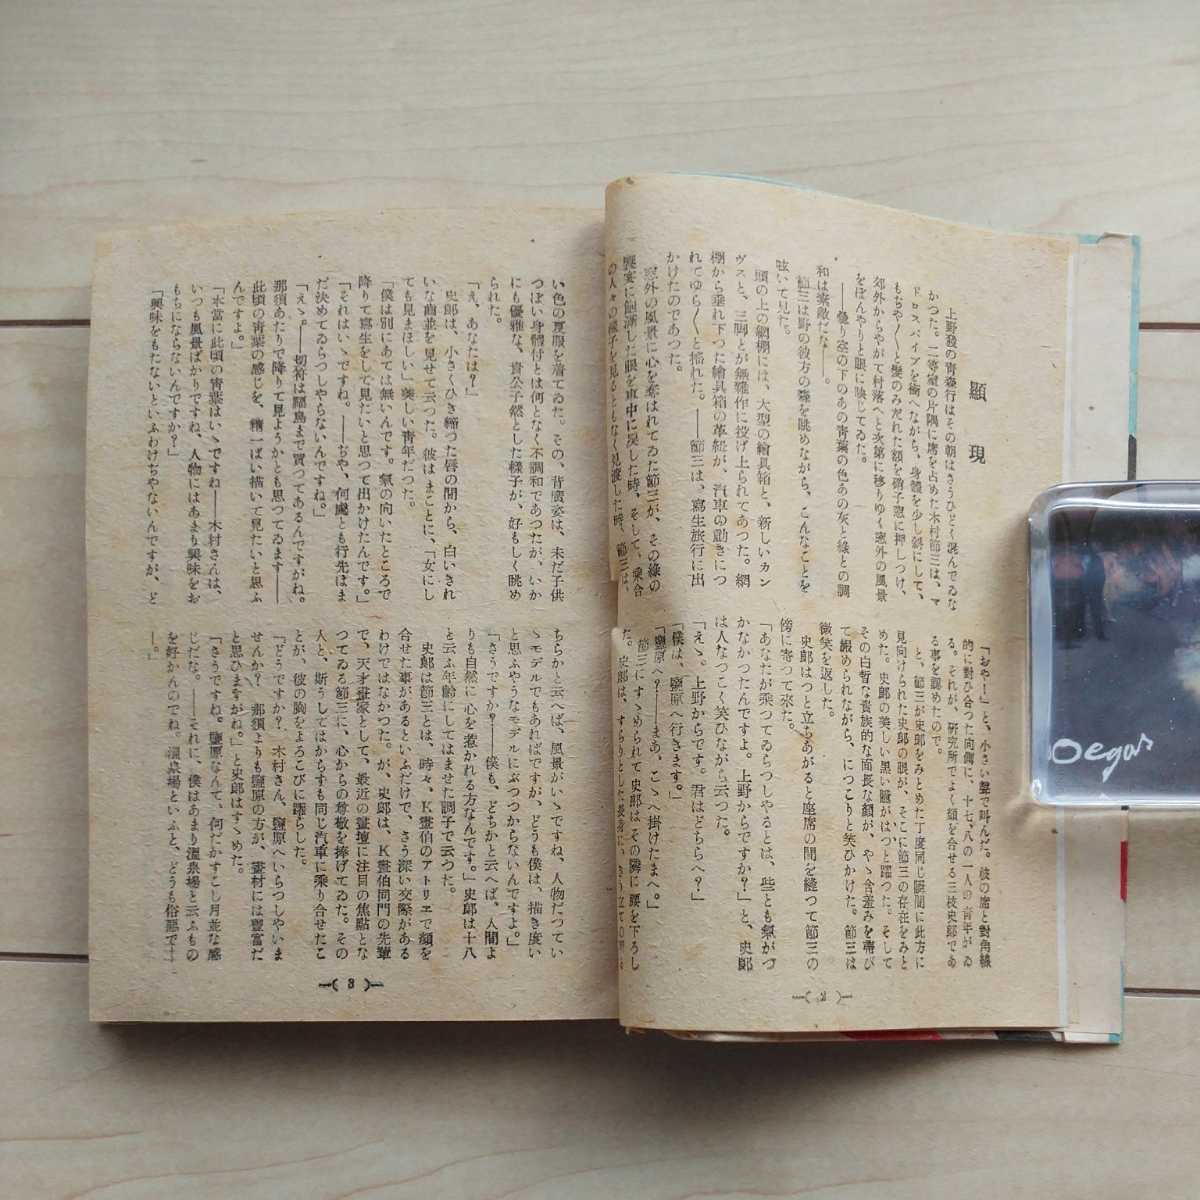 顯現
上野發の青森行はその朝はさうひどく混んでゐな
かつた。二等室の片隅に席を占めた木村節三は、マ
ドロスパイプを銜へながら、身體を少し斜にして、
もぢや〳〵と髮のみだれた額を硝子窓に押しつけ、
郊外からやがて村落へと次第に移りゆく窓外の風景
をぼんやりと眼に映じてゐた。
――曇り空の下のあの靑葉の色あの灰と綠との調
和は素敵だな――。
節三は野の彼方の綠を眺めながら、こんなことを
呟いて見た。
頭の上の網棚には、大型の繪具箱と、新しいカン
ヴスと、三脚とが無雜作に投げ上られてあつた。網
棚から垂れ下つた繪具箱の革紐が、汽車の動きにつ
れてゆら〳〵と搖れた。――節三は、寫生旅行に出
かけたのであつた。
窓外の風景に心を奪はれてゐた節三が、その綠の
饗宴に飽滿した眼を車中に戾した時、そして、乘合
の人々の樣子を見るともなく見渡した時、節三は、
「おや―」と、小さい聲で叫んだ。彼の席と對角線
的に對ひ合つた向側に、十七、八の一人の靑年がゐ
る。それが、硏究所でよく顏を合せる三枝史郎であ
る事を認めたので。
と、節三が史郎をみとめた丁度同じ瞬間に此方に
見向けられた史郎の眼が、そこに節三の存在をみと
めた。史郎の美しい黑い瞳がはつと躍つた。そして
その白皙な貴族的な面長な顏が、やゝ含羞みを帶び
て赧められながら、につこりと笑ひかけた。節三は
微笑を返した。
史郎はつと立ちあがると座席の間を縫つて節三の
傍に寄つて來た。
「あなたが乘つてゐらつしやるとは、些とも氣がつ
かなかつたんですよ。上野からですか？」と、史郎
は人なつこく笑ひながら云つた。
「えゝ。上野からです。君はどちらへ？」
「僕は、鹽原へ行きます。」
「鹽原へ？――まあ、こゝへ掛けたまへ。」
節三にすゝめられて史郎はその隣に腰を下ろし
た。史郎は、すらりとした長身に、
―( 2 )―
い色の夏服を着てゐた。その、背廣姿は、未だ子供
つぽい身體付とは何となく不調和であつたが、いか
にも優雅な、貴公子然とした樣子が、好もしく眺め
られた。
「え、あなたは？」
史郎は、小さくひき緊つた唇の間から、白いきれ
いな齒並を見せて云つた。彼はまことに、「女にし
ても見まほしい」美しい靑年だつた。
「僕は別にあては無いんです。氣の向いたところで
降りて寫生をして見たいと思つて出かけたんです。」
「それはいゝですね。――ぢや、何處とも行先はま
だ決めてゐらつしやらないんですね。」
「えゝ。――切符は福島まで買つてあるんですがね。
那須あたりで降りて見ようかとも思つてゐます――
此頃の靑葉の感じを、精一ぱい描いて見たいと思ふ
んですよ。」
「本當に此頃の靑葉はいゝですね――木村さんは、
いつも風景ばかりですね、人物にはあまり興味をお
もちにならないんですか？」
「興味をもたないといふわけぢやないんですが、ど
ちらかと云へば、風景がいゝですね、人物だつてい
ゝモデルでもあればですが、どうも僕は、描き度い
と思ふやうなモデルにぶつつからないんですよ。」
「さうですか？――僕も、どちかと云へば、人間よ
りも自然に心を惹かれる方なんです。」史郎は十八
と云ふ年齡にしてはませた調子で云つた。
史郎は節三とは、時々、K畫伯のアトリエで顏を
合せた事があるといふだけで、さう深い交際がある
わけではなかつた。が、史郎は、K畫伯同門の先輩
で、天才畫家として、最近の畫壇に注目の焦點とな
つてゐる節三に、心からの尊敬を捧げてゐた。その
人と、斯うしてはからずも同じ汽車に乘り合せたこ
とが、彼の胸をよろこびに躍らした。
「どうですか？、木村さん、鹽原へいらつしやいま
せんか？　那須よりも鹽原の方が、畫材には豐富だ
と思ひますがね。」と史郎はすゝめた。
「さうですね。鹽原なんて、何だかすこし月並な感
じだな。――それに、僕はあまり溫泉場と云ふもの
を好かんのでね。溫泉場といふと、どうも俗惡で―
―。」
―( 3 )―
Degas